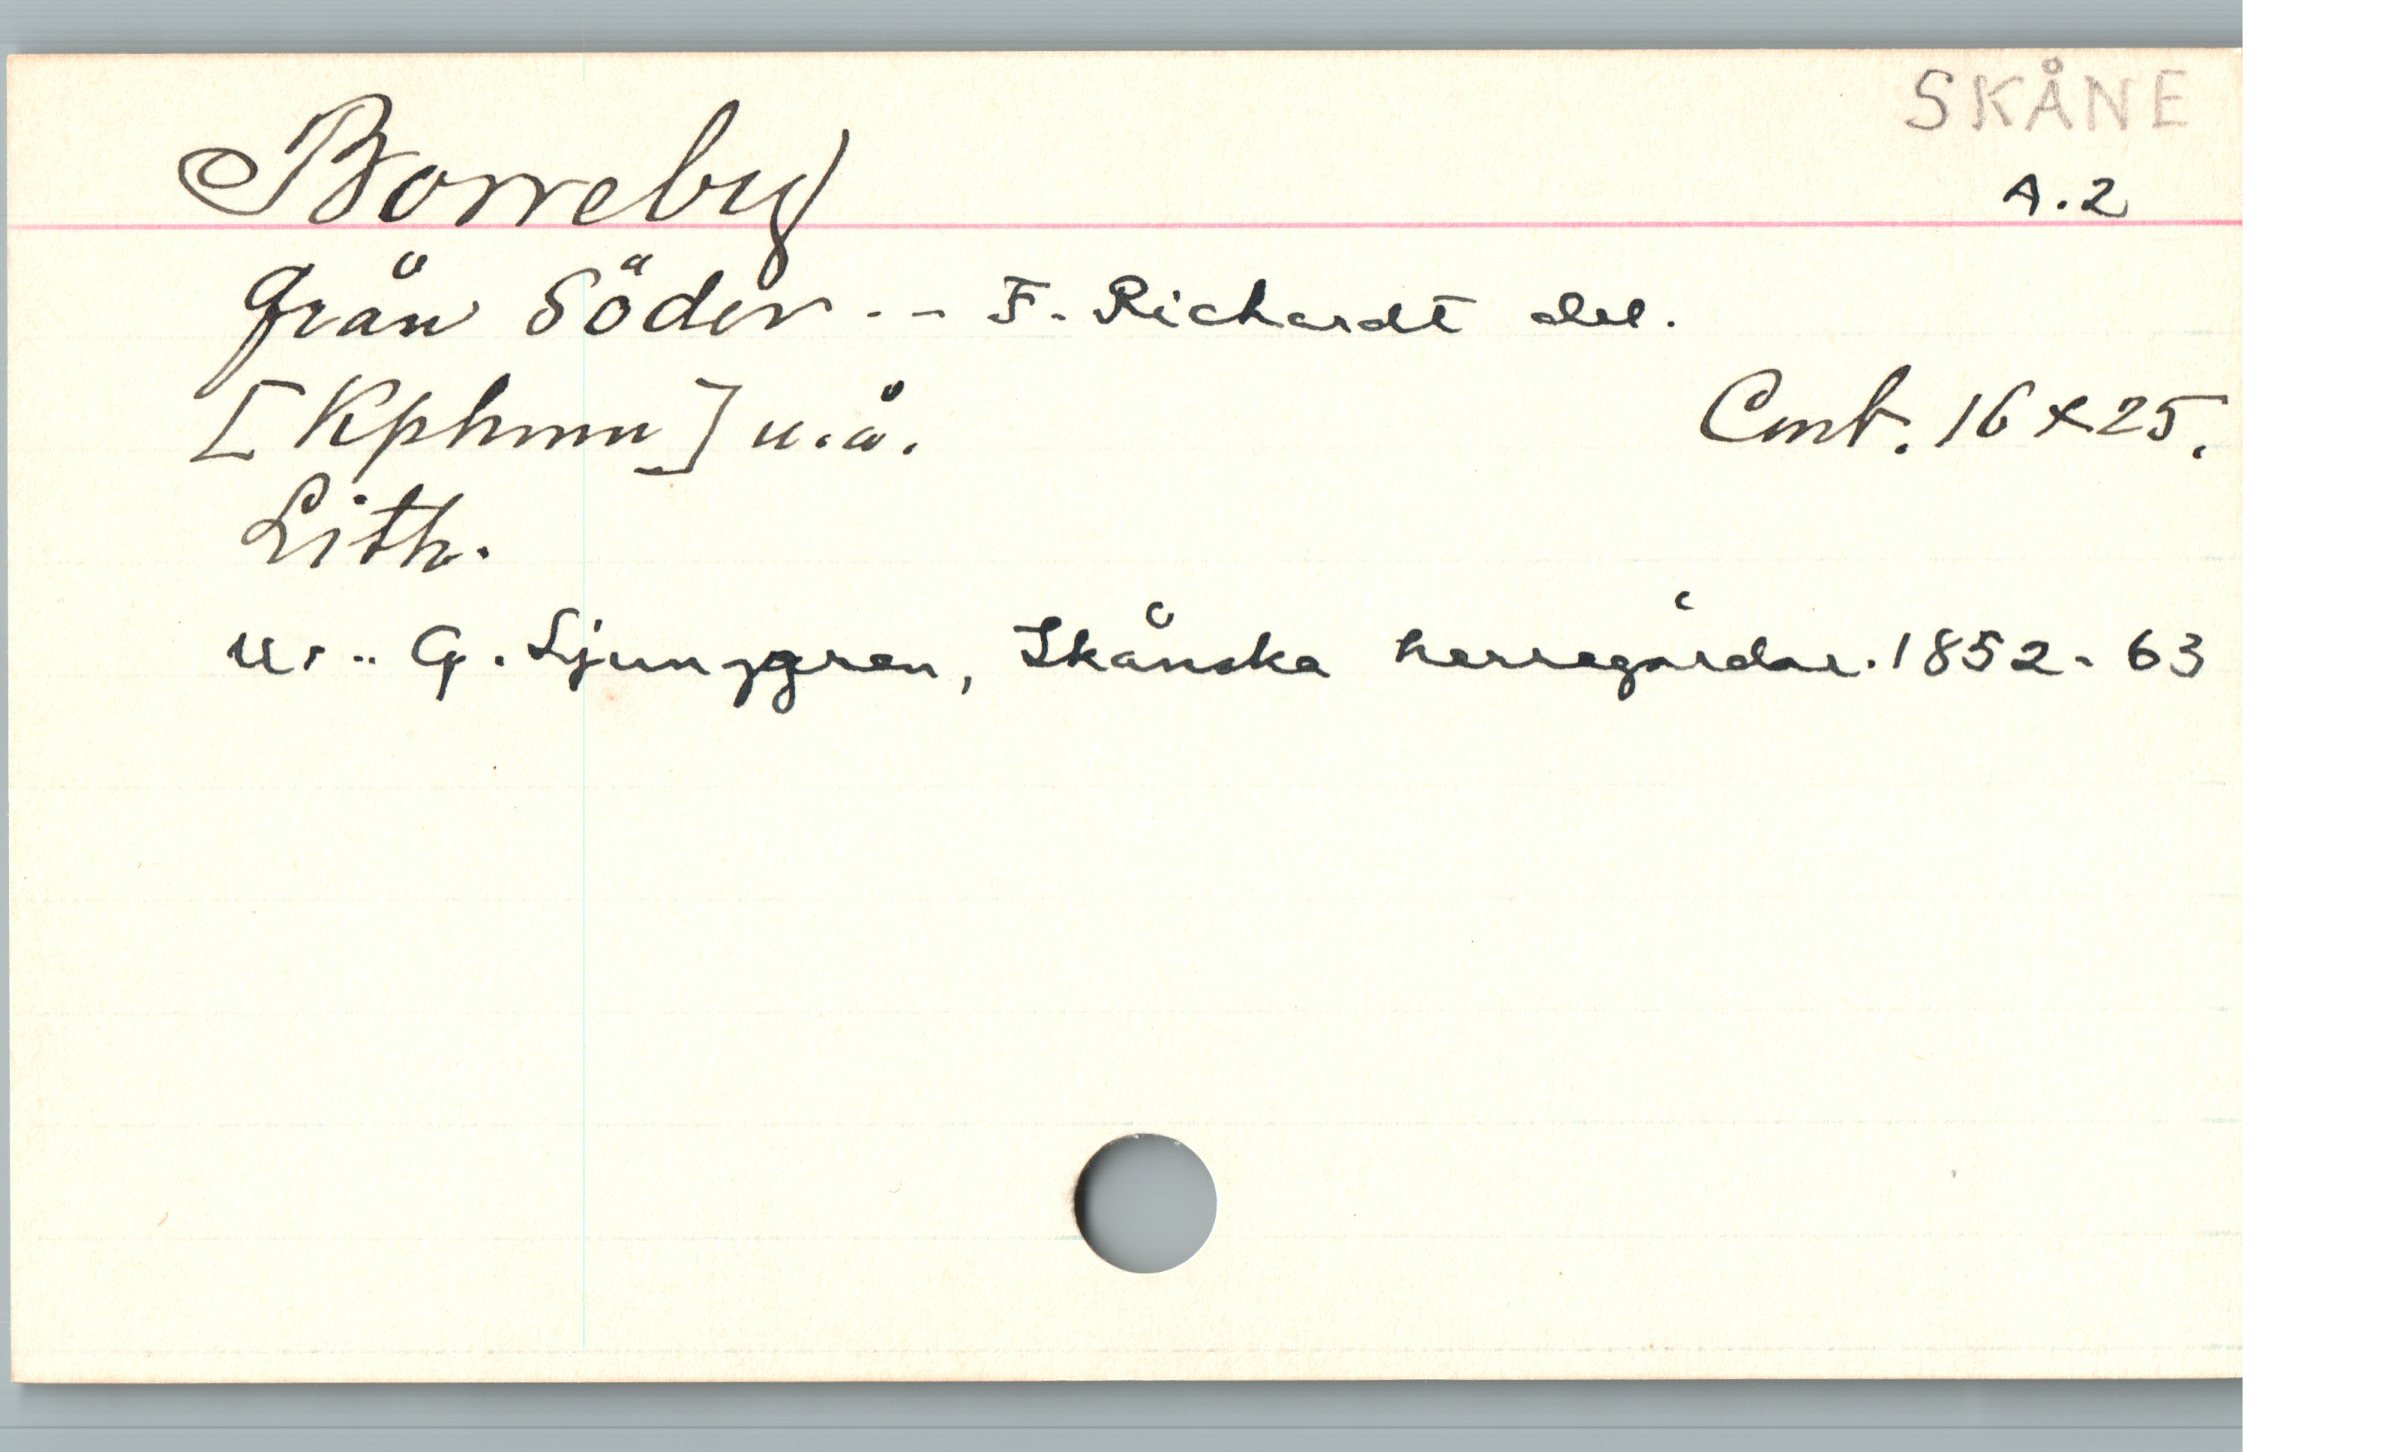 SKÅNE
Borreby
A.2
från Söder. - F. Richardt del.
[Kphmn] u.å.
Cmt. 16 x 25.
Lith.
Ur: G. Ljunggren, Skånska herregårdar. 1852-63